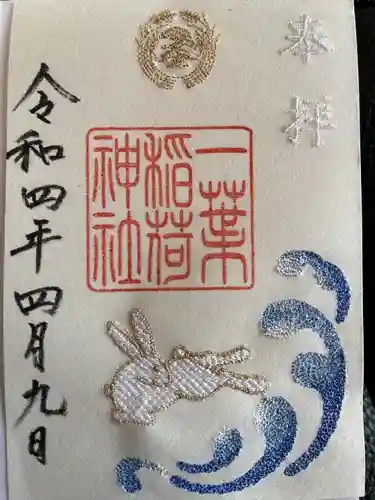 奉拝
一葉
稲荷
神社
令和四年四月九日